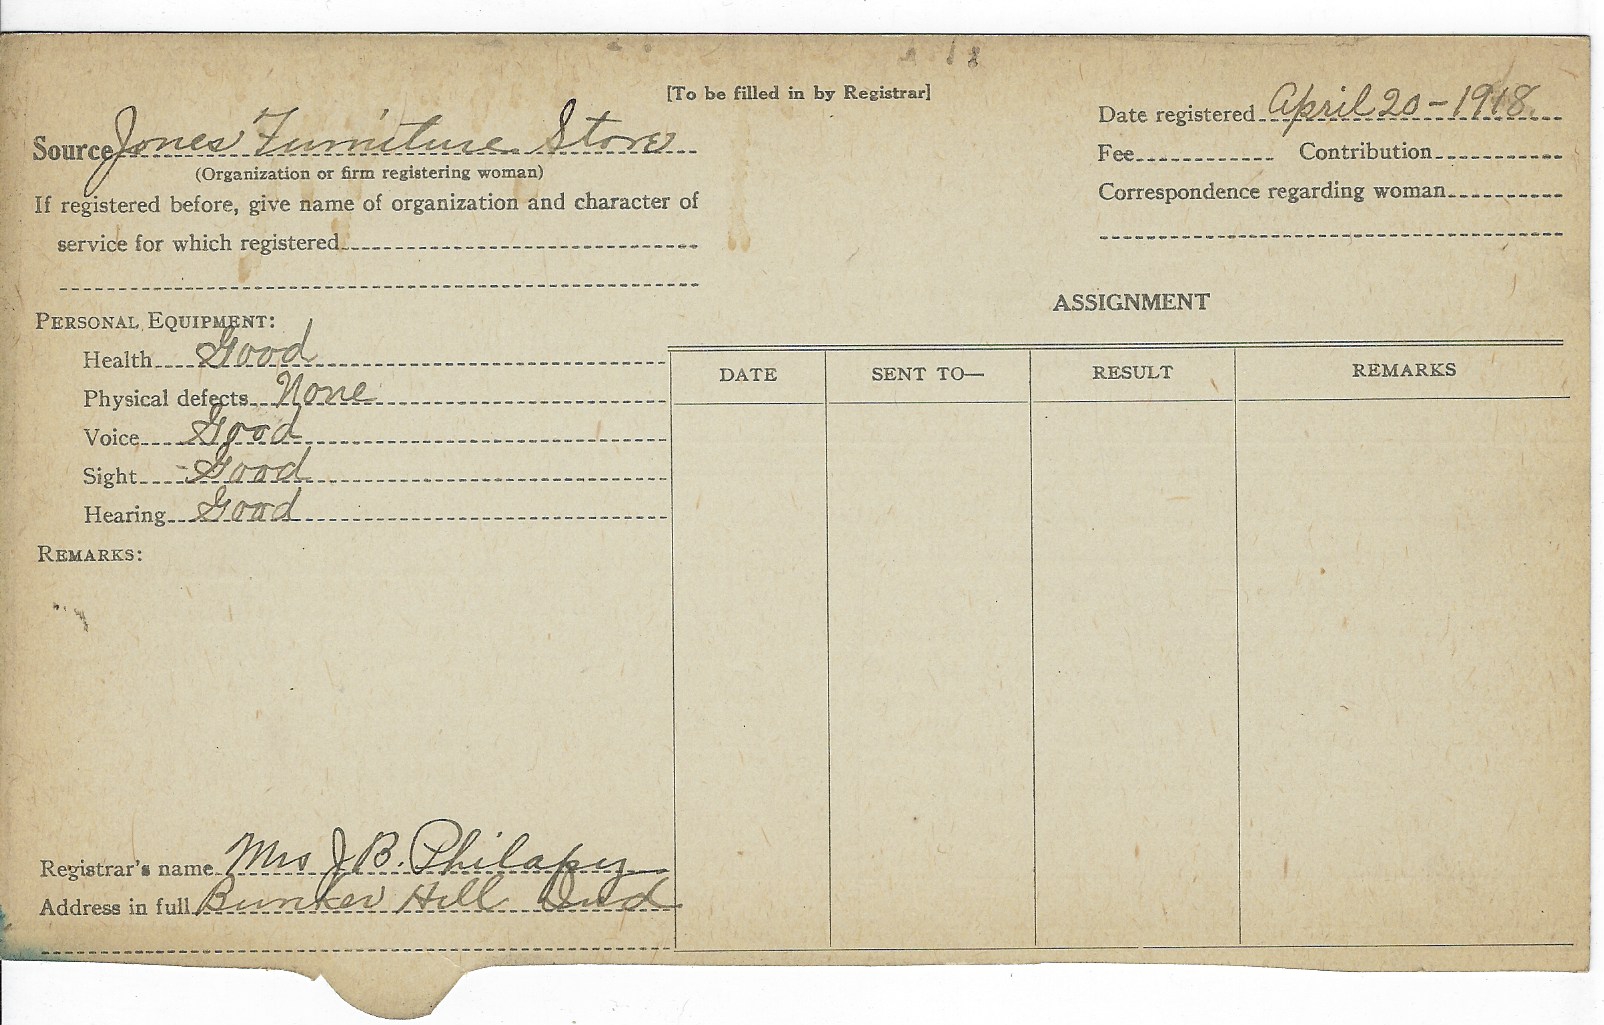 [To be filled in by Registrar]
Source Jones Furniture Store
(Organization or firm registering woman)
If registered before, give name of organization and character of
service for which registered
Date registered April 20-1918.
Fee Contribution
Correspondence regarding woman
PERSONAL EQUIPMENT:
Health Good
Physical defects None
Voice Good
Sight - Good
Hearing Good
REMARKS:
ASSIGNMENT
DATE SENT TO— RESULT REMARKS
Registrar's name Mrs J B.
Address in full Bunker Hill Ind